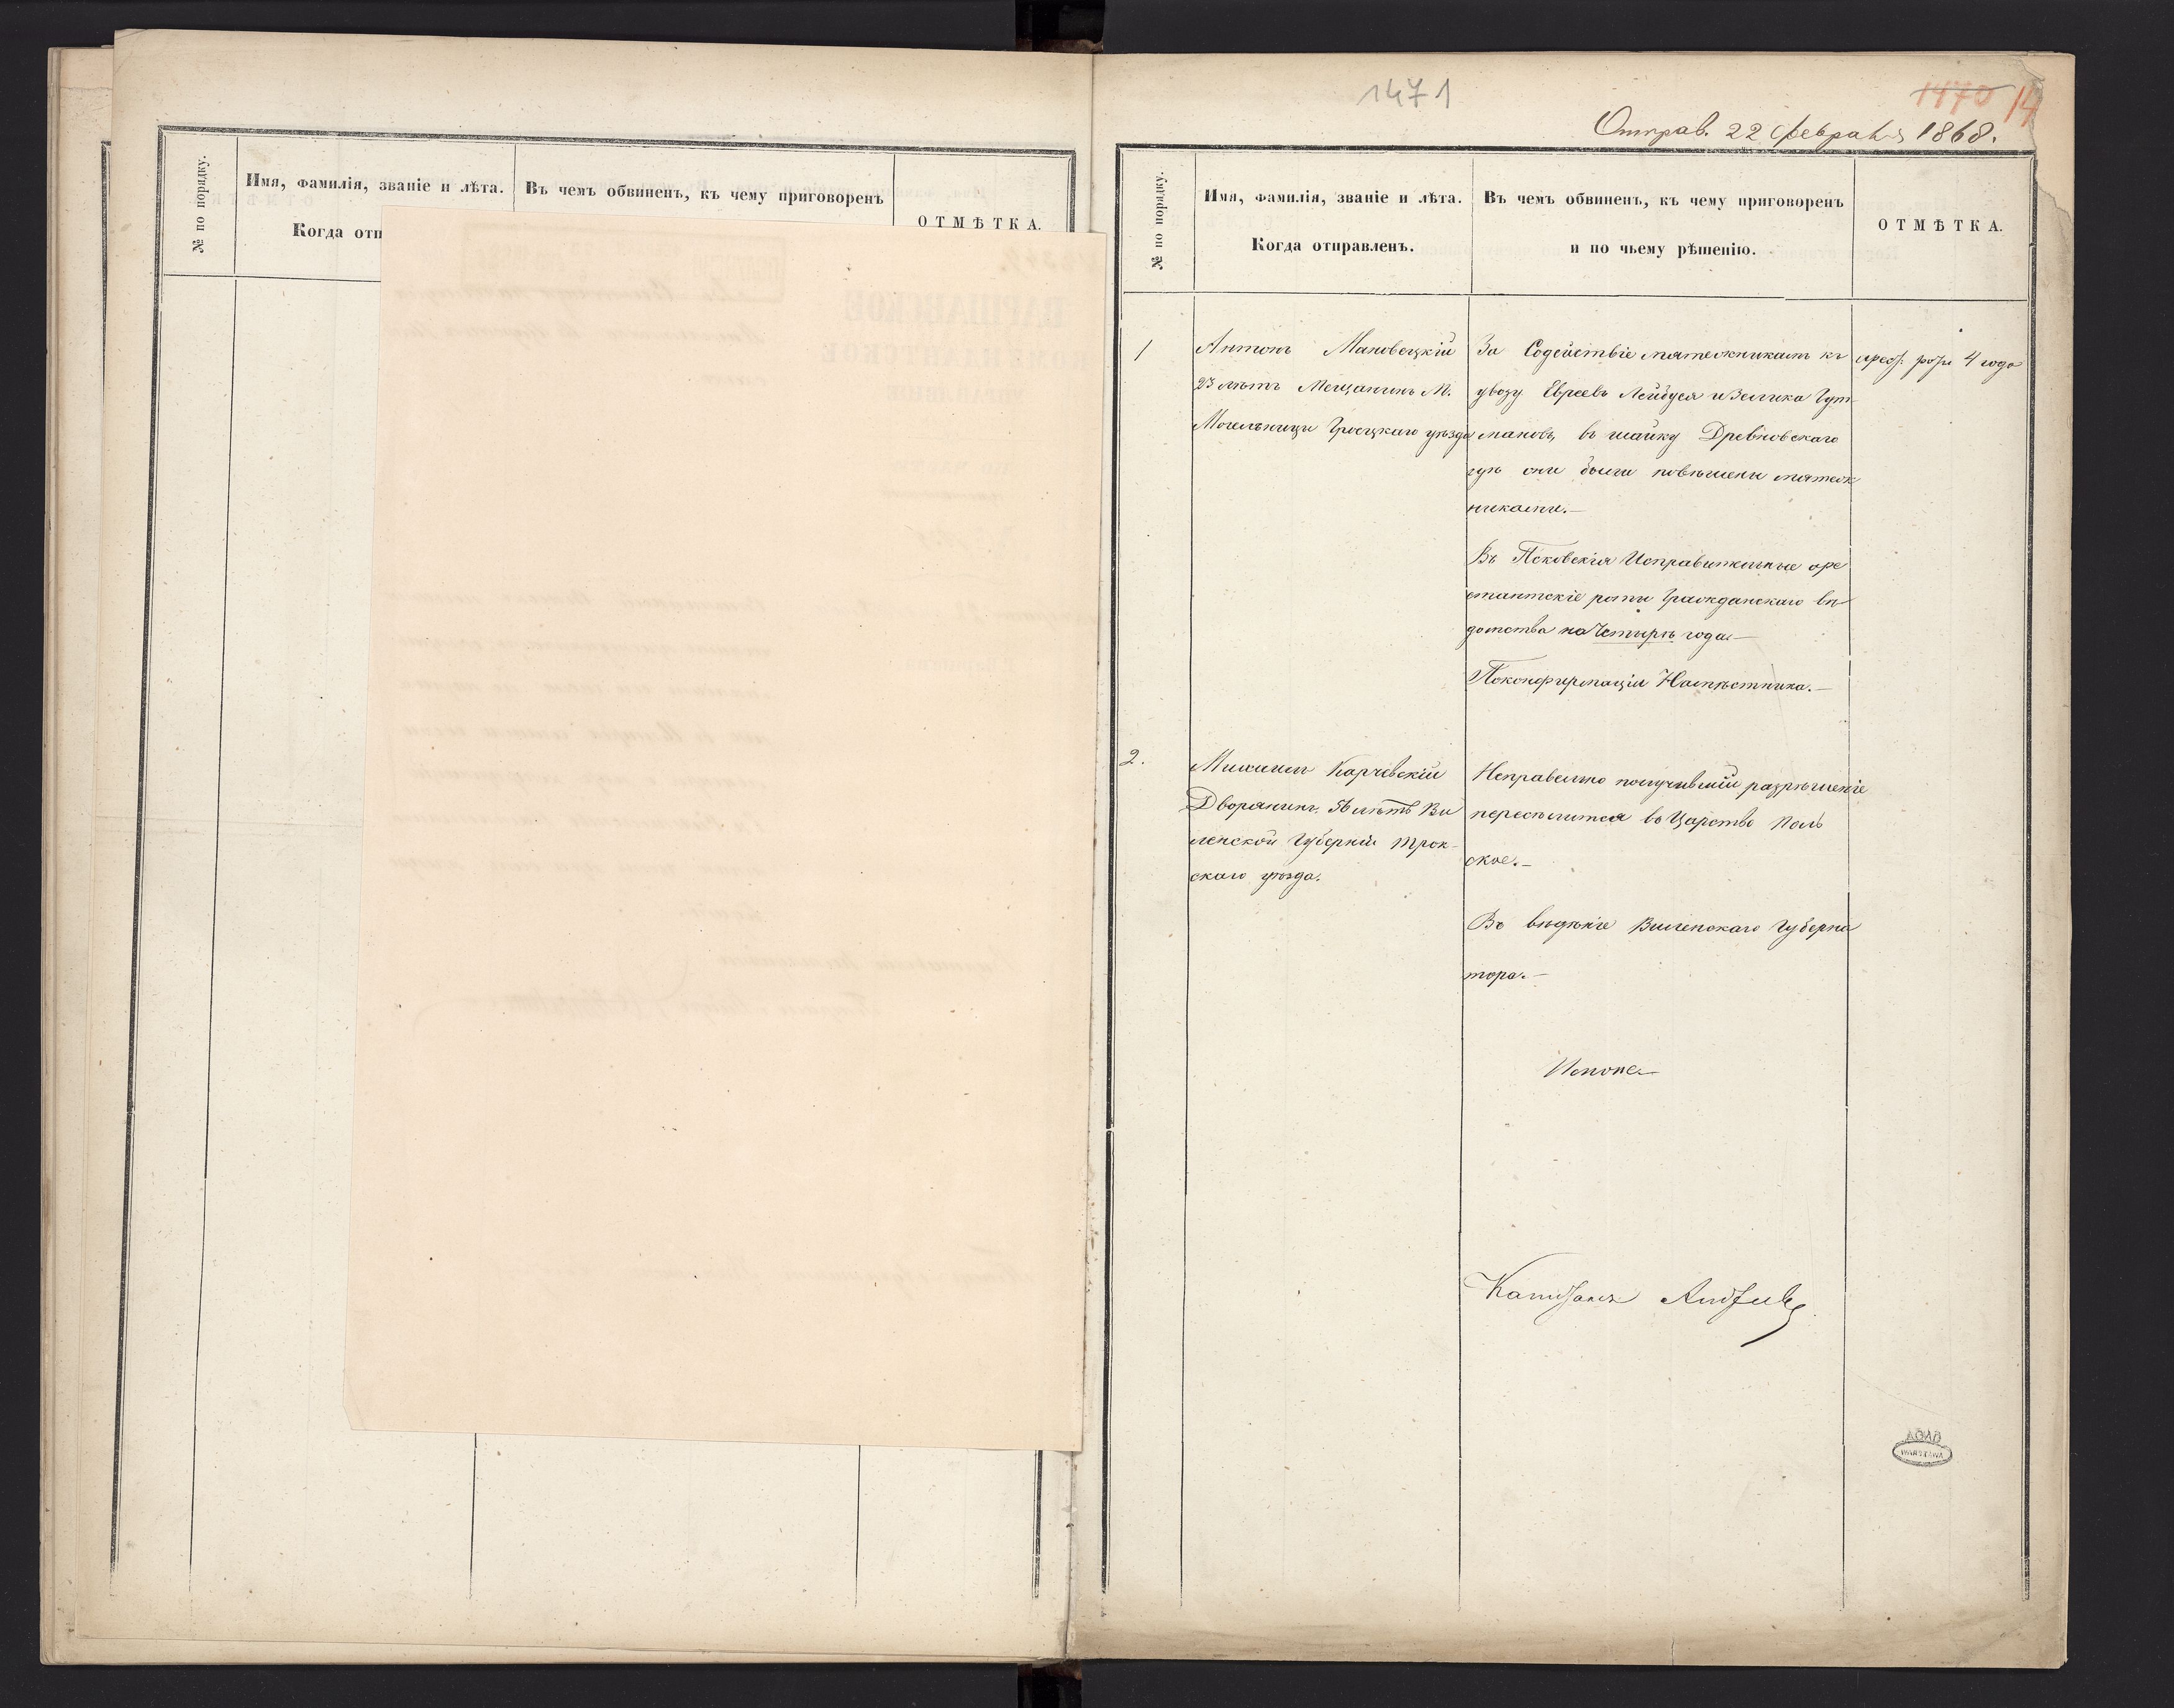 № по порядку.
Имя, фамилія, званіе и лѣта.
Когда отп
Въ чемъ обвиненъ, къ чему приговоренъ
ОТМѢТКА.
1471
1470 14
Отправ. 22 февраля 1868.
№ по порядку.
Имя, фамилія, званіе и лѣта.
Когда отправленъ.
Въ чемъ обвиненъ, къ чему приговоренъ
и по чьему рѣшенію.
ОТМѢТКА.
1
Антонъ Мановецкій
23 лѣтъ Мещанинъ М.
Могельницы Гроецкаго уѣзда
За Содействіе мятежникамъ къ
увозу Евреевъ Лейбуся и Зелика Гут
мановъ, въ шайку Древновскаго
гдѣ они были повѣшены мятеж
никами.—
Въ Псковскія Исправительные аре
стантскіе роты Гражданскаго вѣ
домства на Четырѣ года—
По конфирмаціи Намѣстника.—
арест. роты 4 года
2.
Михаилъ Карчевскій
Дворянинъ, лѣтъ Ви
ленской Губерніи Трок-
скаго уѣзда.
Неправельно получившій разрѣшеніе
переселится въ Царство Поль
ское.—
Въ вѣдѣніе Виленскаго Губерна
тора.—
Капитанъ
AGAD
WARSZAWA